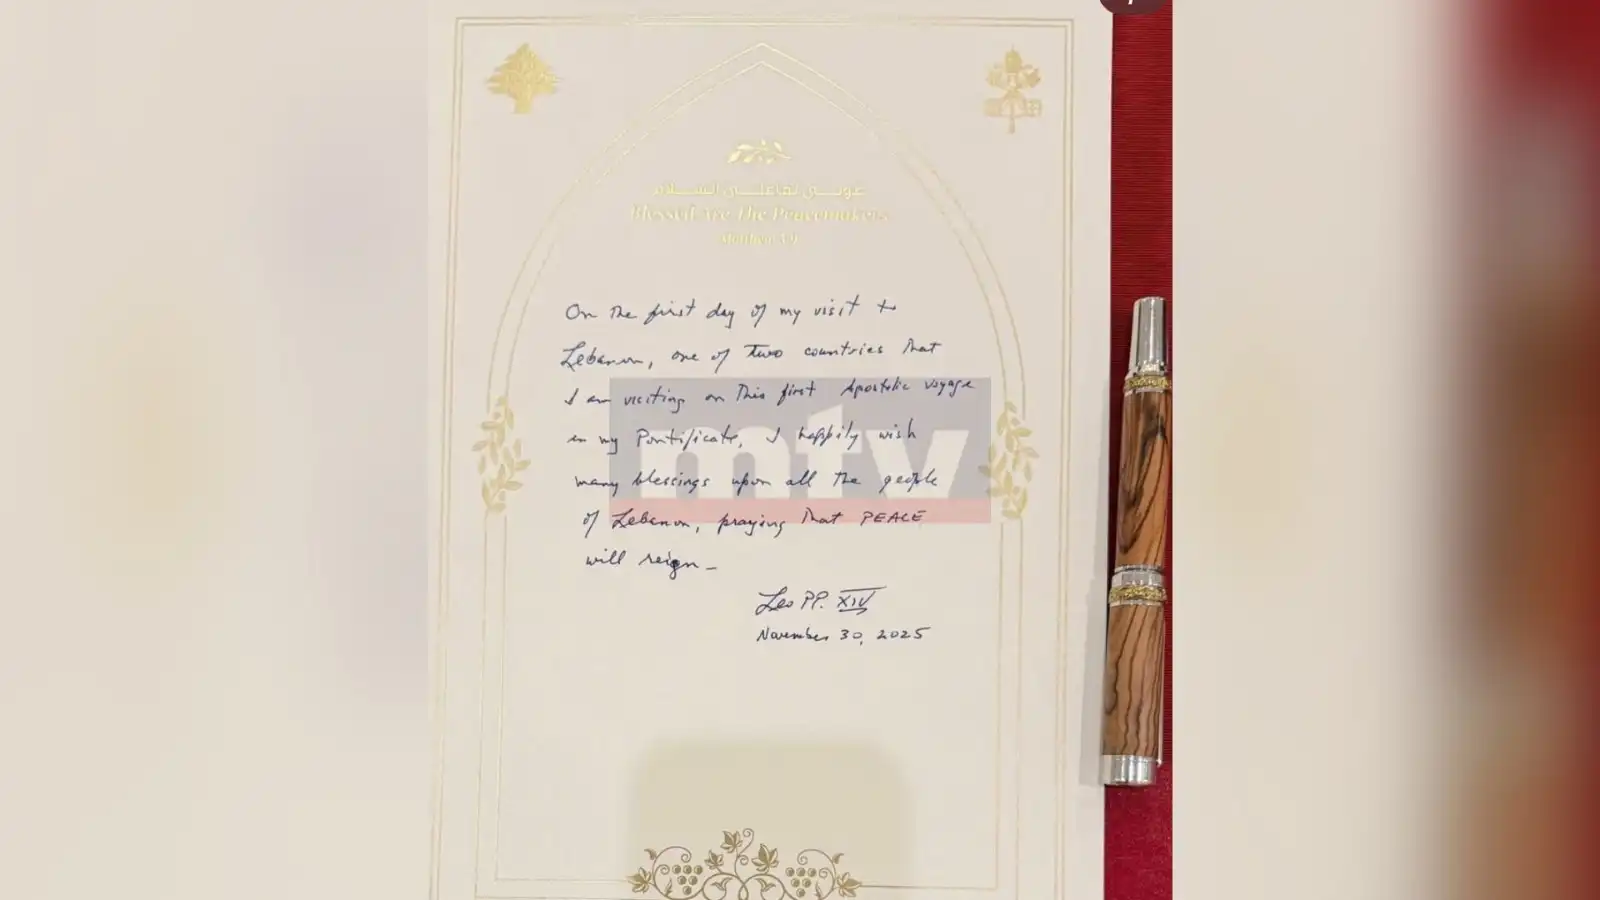 طوبى لفاعلي السلام
Blessed Are The Peacemakers
Matthew 5:9
On the first day of my visit to
Lebanon, one of two countries that
I am visiting on this first Apostolic voyage
in my Pontificate, I happily wish
many blessings upon all the people
of Lebanon, praying that PEACE
will reign –
Leo PP. XIV
November 30, 2025
mtv